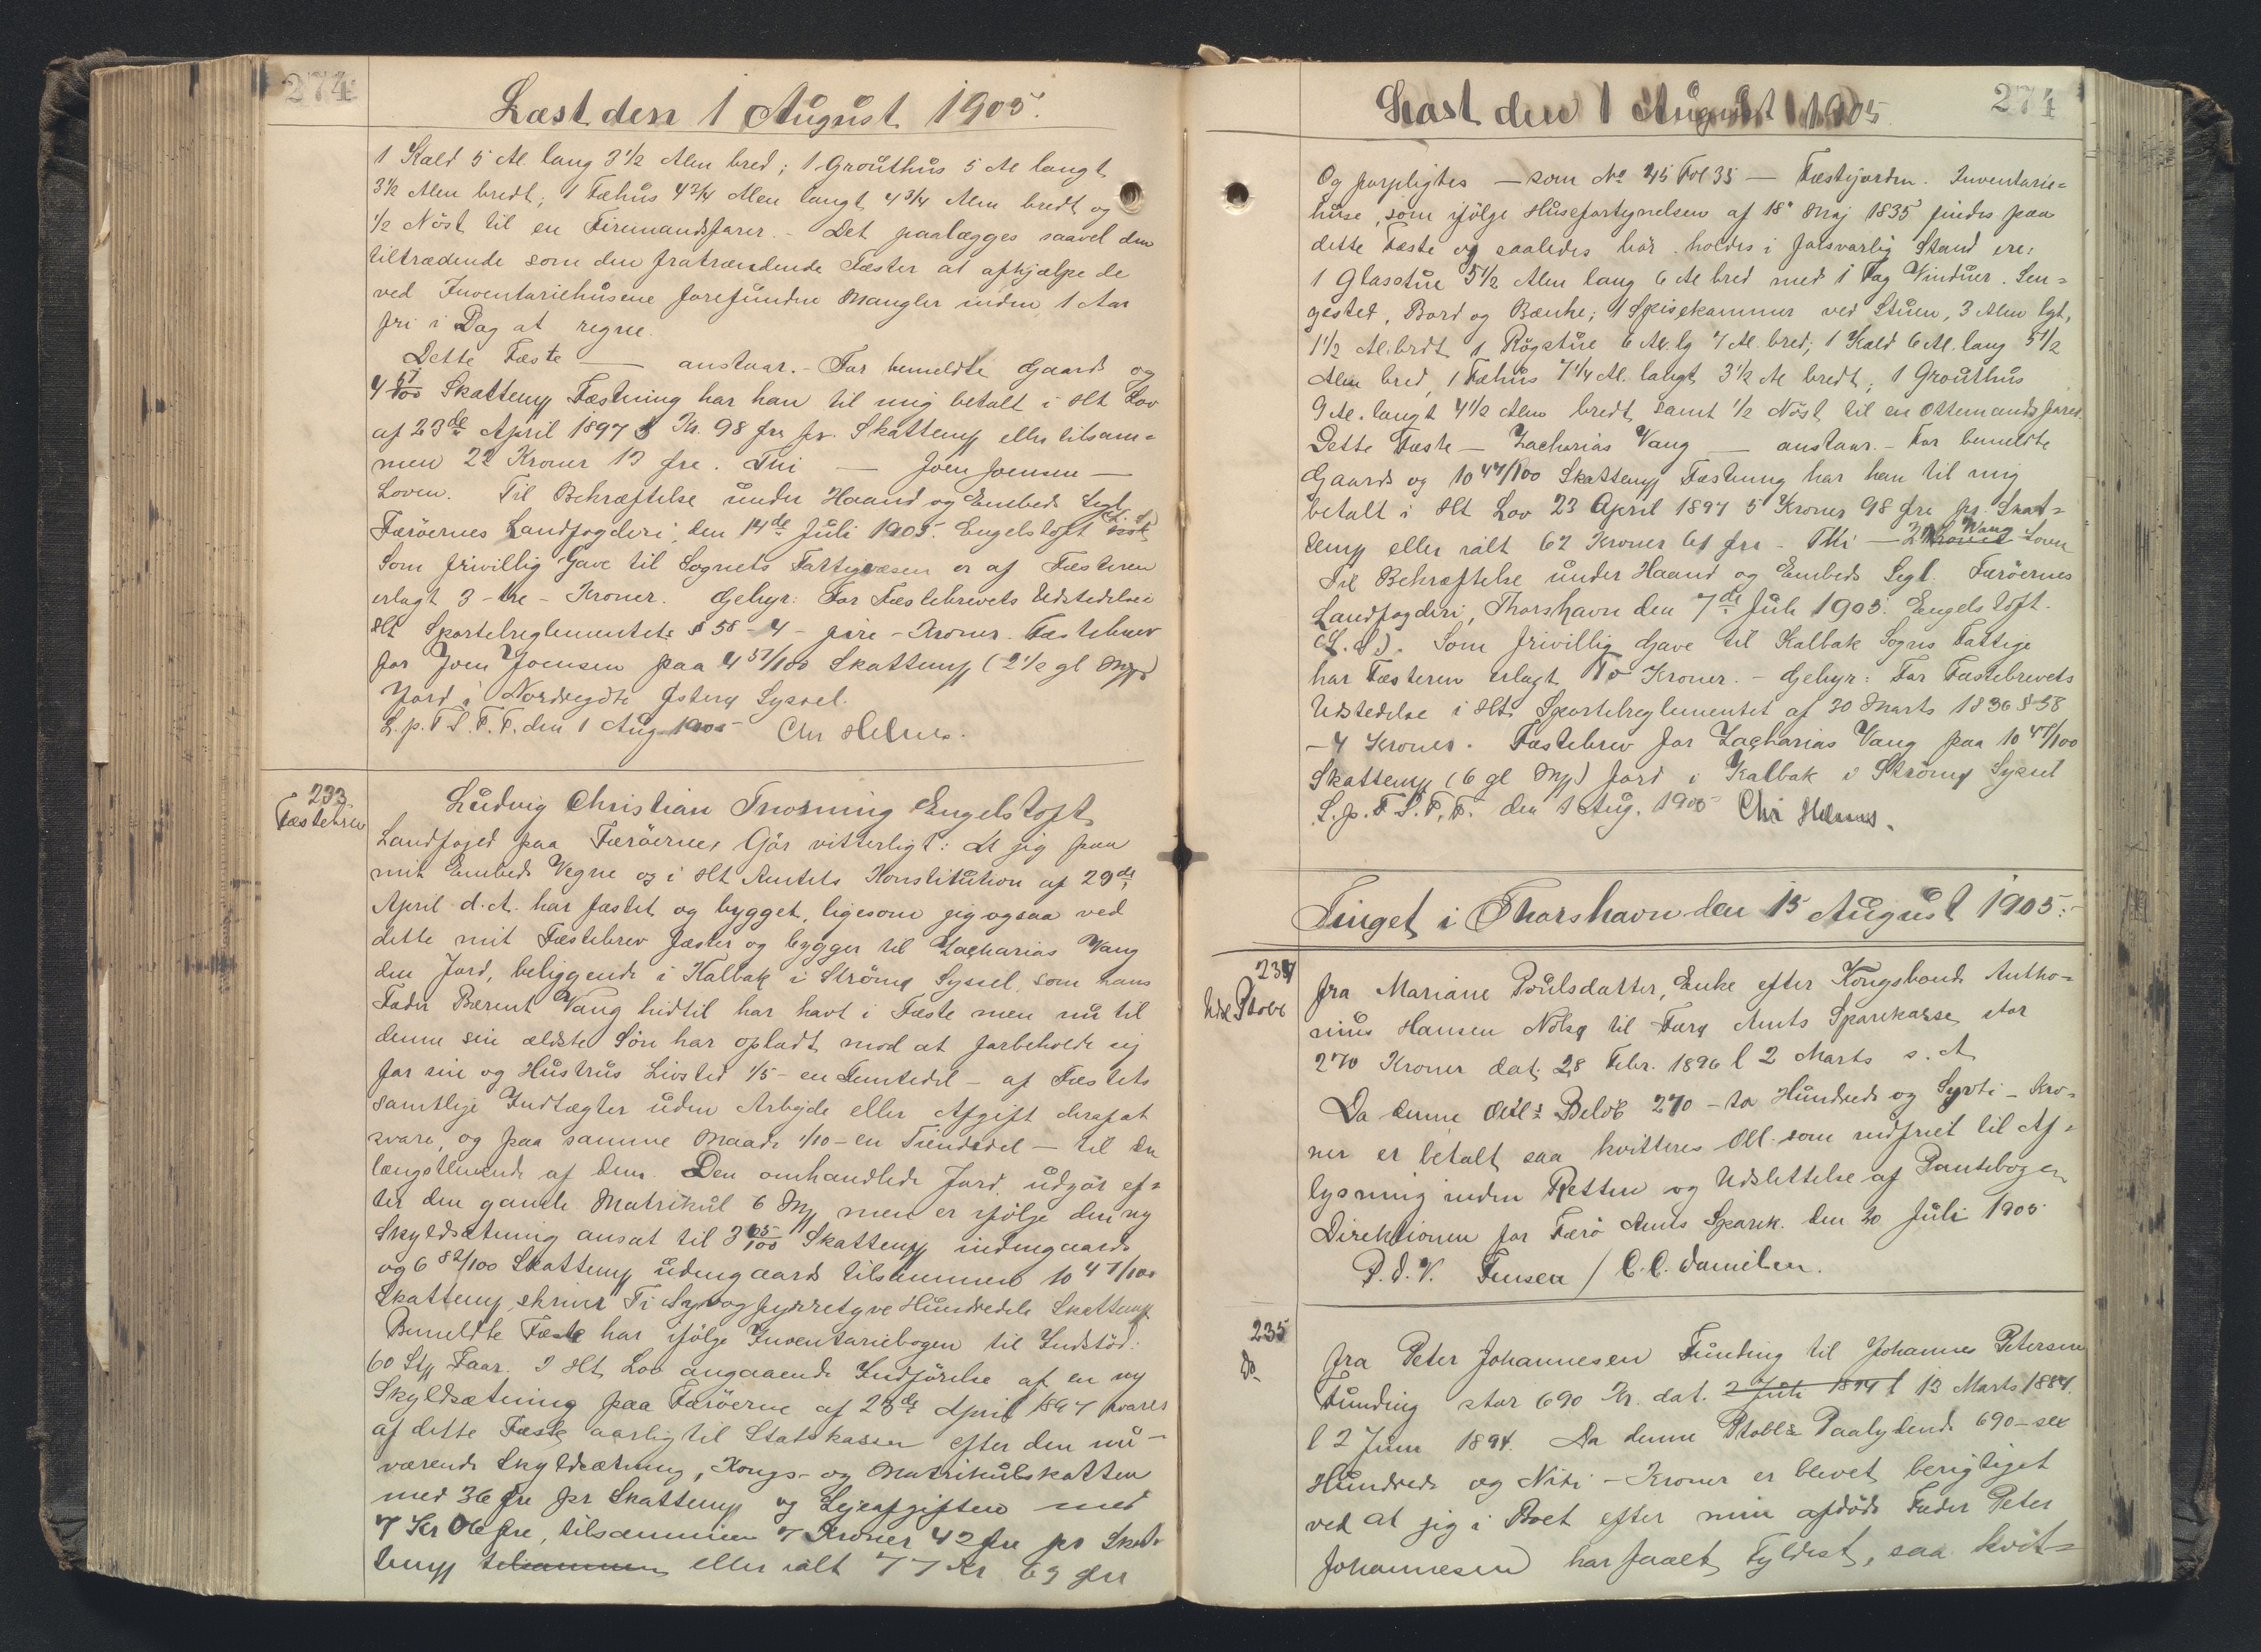 274
Læst den 1 August 1905.
1 Kald 5 Al. lang 3 1/2 Alen bred; 1 Grouthus 5 Al langt
3 1/2 Alen bredt; 1 Fæhus 4 3/4 Alen langt 4 3/4 Alen bredt og
1/2 Nöst til en Firemandsfarer. - Det paalægges saavel den
tiltrædende som den fratrædende Fæster at afhjælpe de
ved Inventariehusene forefundne Mangler inden 1 Aar
fri i Dag at regne.
Dette Fæste — anstaar. - For bemeldte Gaard og
4 57/100 Skattemp Fæstning har han til mig betalt i Hht Lov
af 23de April 1897 5 Kr. 98 Øre pr. Skattemp eller tilsam=
men 22 Kroner 13 Øre. Thi — Joen Joensen —
Loven. Til Bekræftelse under Haand og Embeds Segl
Færöernes Landfogderi, den 14de Juli 1905. Engelstoft
Som frivillig Gave til Sognets Fattigvæsen er af Fæsteren
erlagt 3 - tre - Kroner. Gebyr: For Fæstebrevets Udstedelse
Hht Sportelreglementets § 58 - 4 - fire - Kroner. Fæstebrev
for Joen Joensen paa 4 57/100 Skattemp (2 1/2 gl Mp)
Jord i Nordregöte Østerø Syssel.
L. p. F. L. F. T. den 1 Aug 1905 Chr Helms.
233
Fæstebrev
Ludvig Christian Thorning Engelstoft
Landfoged paa Færöerne, Gör vitterligt: At jeg paa
mit Embeds Vegne og i Hht Amtets Konstitution af 29de
April d. A. har fæstet og bygget, ligesom jeg ogsaa ved
dette mit Fæstebrev fæster og bygger til Zacharias Vang
den Jord, beliggende i Kalbak i Strömø Syssel, som hans
Fader Berent Vang hidtil har havt i Fæste men nu til
denne sin ældste Sön har opladt mod at forbeholde sig
for sin og Hustrus Livstid 1/5 - en Femtedel - af Fæstets
samtlige Indtægter uden Arbejde eller Afgift deraf at
svare, og paa samme Maade 1/10 - en Tiendedel - til den
længstlevende af dem. Den omhandlede Jord udgör ef=
ter den gamle Matrikul 6 Mp men er ifölge den ny
Skyldsætning ansat til 3 65/100 Skattemp indengaards
og 6 82/100 Skattemp udengaards tilsammen 10 47/100
Skattemp, skriver Ti Syvogfyrretyve Hundrededele Skattemp
Bemeldte Fæste har ifölge Inventariebogen til Indstöd:
60 Stp Faar. I Hht Lov angaaende Indförelse af en ny
Skyldsætning paa Færöerne af 23de April 1897 svares
af dette Fæste aarlig til Statskassen efter den nu-
værende Skyldsætning, Kongs- og Matrikulskatten
med 36 Øre pr Skattemp og Lejeafgiften med
7 Kr 06 Øre, tilsammen 7 Kroner 42 Øre pr Skat=
temp tilsammen eller ialt 77 Kr 69 Øre
274
Læst den 1 August 1905
Og forpligtes — som No 45 Fol 35 — Fæstejorden. Inventarie=
huse, som ifölge Husefortegnelsen af 18 Maj 1835 findes paa
dette Fæste og saaledes bör holdes i forsvarlig Stand ere:
1 Glasstue 5 1/2 Alen lang 6 Al bred med 1 Fag Vinduer. Sen=
gested, Bord og Bænke; 1 Spisekammer ved Stuen, 3 Alen lgt,
1 1/2 Al. brdt 1 Rögstue 6 Al. lg 7 Al. bred; 1 Kald 6 Al. lang 5 1/2
Alen bred, 1 Fæhus 7 1/4 Al. langt 3 1/2 Al bredt; 1 Grouthus
9 Al. langt 4 1/2 Alen bredt, samt 1/2 Nöst til en Ottemandsfarer.
Dette Fæste — Zacharias Vang — anstaar. - For bemeldte
Gaards og 10 47/100 Skattemp Fæstning har han til mig
betalt i Hht Lov 23 April 1897 5 Kroner 98 Øre pr. Skat=
temp eller ialt 62 Kroner 61 Øre - Thi — Z Vang Loven
Til Bekræftelse under Haand og Embeds Segl. Færöernes
Landfogderi, Thorshavn den 7de Juli 1905. Engelstoft.
(L. S). Som frivillig Gave til Kalbak Sogns Fattige
har Fæsteren erlagt To Kroner. - Gebyr: For Fæstebrevets
Udstedelse i Hht. Sportelreglementet af 30 Marts 1836 § 58
- 4 Kroner. Fæstebrev for Zacharias Vang paa 10 47/100
Skattemp (6 gl Mp) Jord i Kalbak i Strömø Syssel
L. p. F. L. F. T. den 1 Aug. 1905 Chr Helms.
Tinget i Thorshavn den 15 August 1905:
234
Udsl Ptobl
fra Mariane Poulsdatter, Enke efter Kongsbonde Antho=
nius Hansen Nolsø til Færø Amts Sparekasse stor
270 Kroner dat. 28 Febr. 1896 l 2 Marts s. A
Da denne Obl:s Belöb 270 - to Hundrede og Syvti - Kro=
ner er betalt saa kvitteres Obl. som indfriet til Af=
lysning inden Retten og Udslettelse af Pantebogen
Direktionen for Færö Amts Sparek. den 20 Juli 1905
P. d. V. Jensen / C. C. Danielsen.
235
do
fra Peter Johannesen Funding til Johannes Petersen
Funding stor 690 Kr. dat. 2 Juli 1894 l 13 Marts 1884.
l 2 Juni 1894. Da denne Ptobl:s Paalydende 690 - sex
Hundrede og Niti - Kroner er blevet berigtiget
ved at jeg i Boet efter min afdöde Fader Peter
Johannesen har faaet Fyldest, saa kvit=